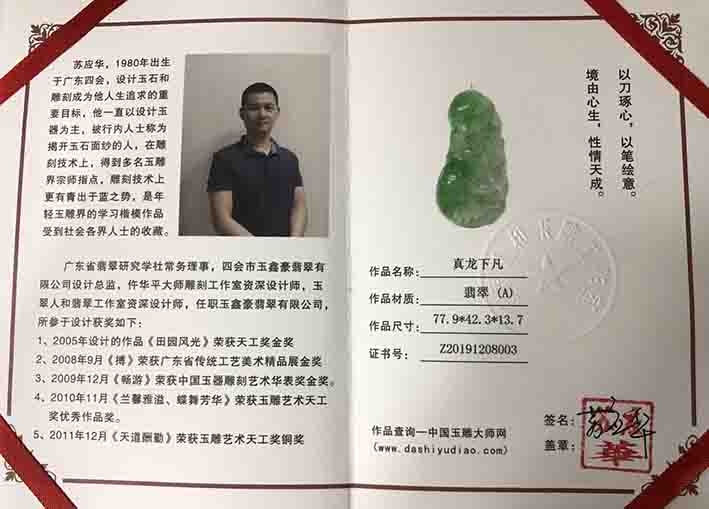 苏应华，1980年出生
于广东四会，设计玉石和
雕刻成为他人生追求的重
要目标，他一直以设计玉
器为主，被行内人士称为
揭开玉石面纱的人，在雕
刻技术上，得到多名玉雕
界宗师指点，雕刻技术上
更有青出于蓝之势，是年
轻玉雕界的学习楷模作品
受到社会各界人士的收藏。
广东省翡翠研究学社常务理事，四会市玉鑫豪翡翠有
限公司设计总监，仵华平大师雕刻工作室资深设计师，玉
翠人和翡翠工作室资深设计师，任职玉鑫豪翡翠有限公司，
所参于设计获奖如下：
1、2005年设计的作品《田园风光》荣获天工奖金奖
2、2008年9月《搏》荣获广东省传统工艺美术精品展金奖
3、2009年12月《畅游》荣获中国玉器雕刻艺术华表奖金奖。
4、2010年11月《兰馨雅溢、蝶舞芳华》荣获玉雕艺术天工
奖优秀作品奖。
5、2011年12月《天道酬勤》荣获玉雕艺术天工奖铜奖
以刀琢心，以笔绘意。
境由心生，性情天成。
作品名称： 真龙下凡
作品材质： 翡翠（A）
作品尺寸： 77.9*42.3*13.7
证书号： Z20191208003
签名：
盖章：
作品查询—中国玉雕大师网
(www.dashiyudiao.com)